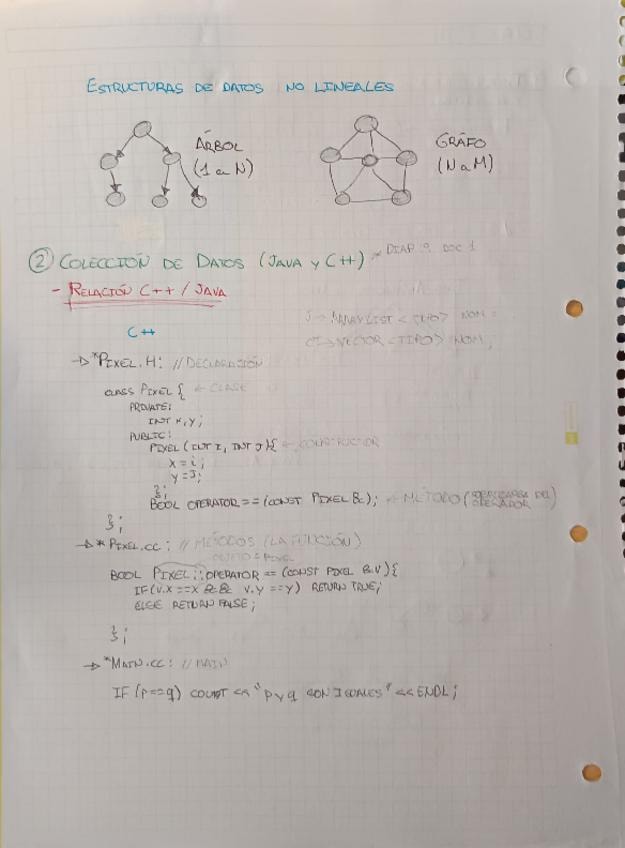 ESTRUCTURAS DE DATOS NO LINEALES
ÁRBOL
(1 a N)
GRÁFO
(N a M)
② COLECCIÓN DE DATOS (JAVA Y C++) DIAP 9 DOC 1
- RELACIÓN C++ / JAVA
J → ARRAYLIST <TIPO> NOM
C++
VECTOR <TIPO> NOM;
→ *PIXEL.H: // DECLARACIÓN
CLASS PIXEL { ← CLASE
PRIVATE:
INT X, Y;
PUBLIC:
PIXEL (INT I, INT J){ ← CONSTRUCTOR
X = i;
Y = J;
};
BOOL OPERATOR == (CONST PIXEL &); ← MÉTODO (SOBRECARGA DEL OPERADOR)
};
→ *PIXEL.CC: // MÉTODOS (LA FUNCIÓN)
BOOL PIXEL::OPERATOR == (CONST PIXEL &V){
IF(V.X == X && V.Y == Y) RETURN TRUE;
ELSE RETURN FALSE;
};
→ *MAIN.CC: // MAIN
IF (P==q) COUT << "P y q SON IGUALES" << ENDL;